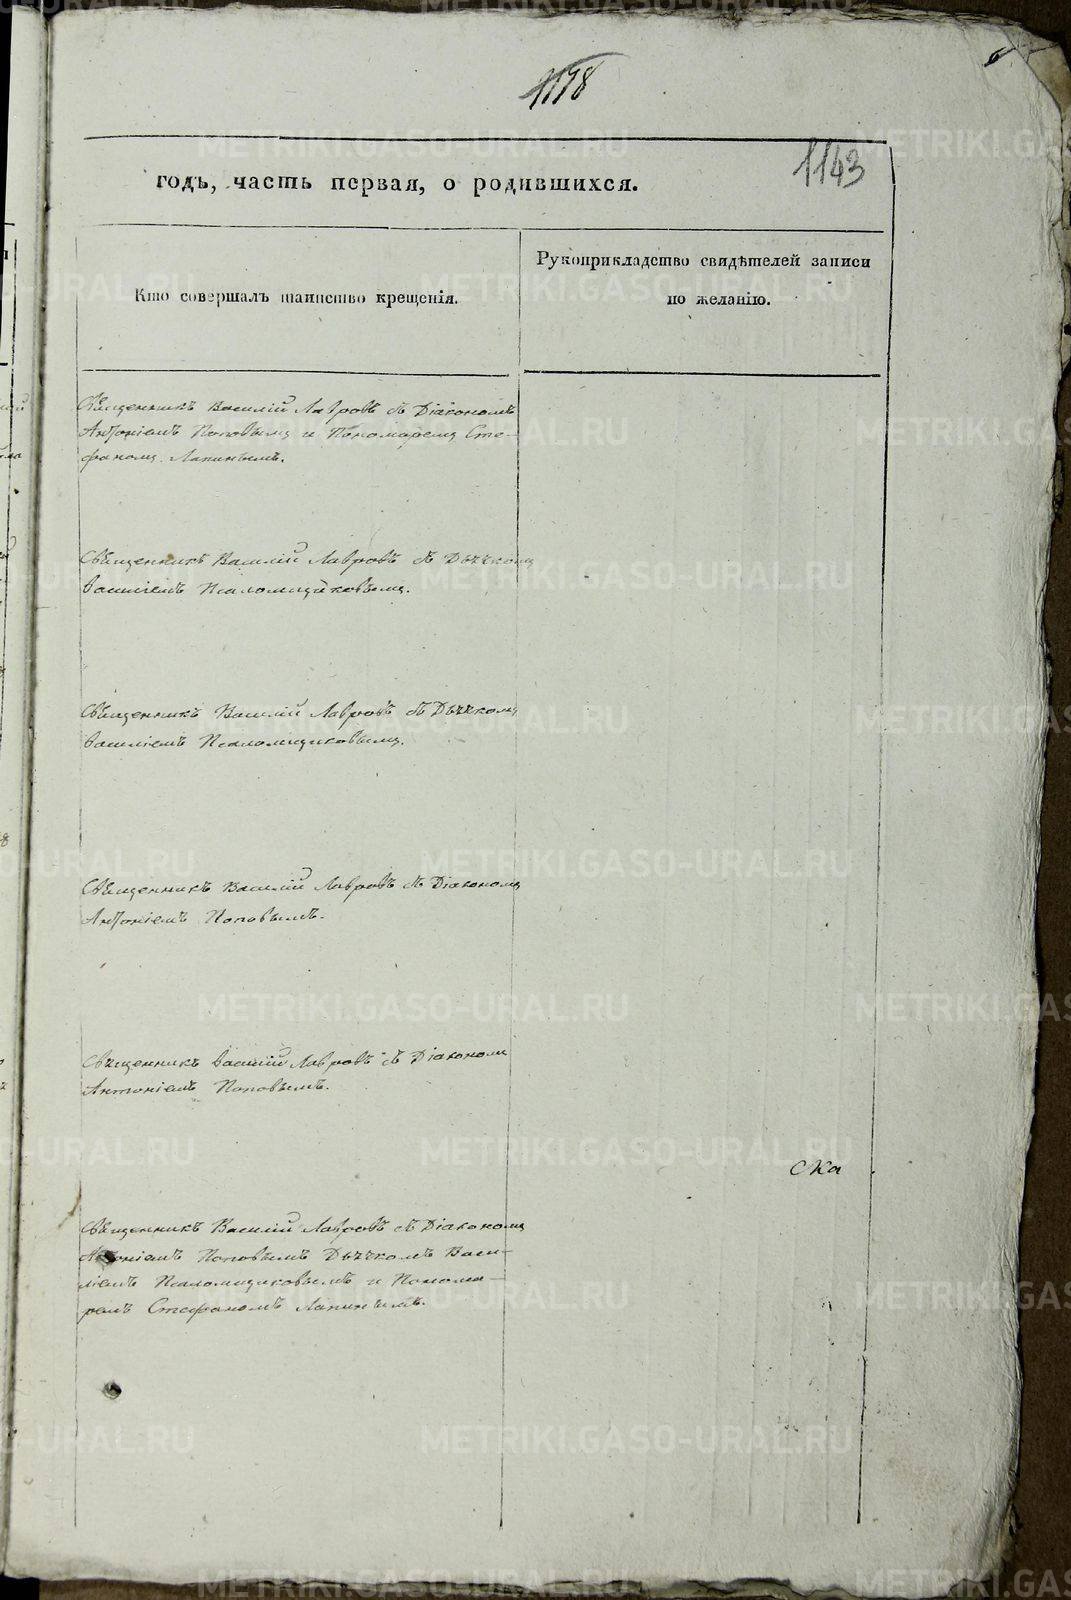 1178
6
1143
годъ, часть первая, о родившихся.
Кто совершалъ таинство крещенія.
Рукоприкладство свидѣтелей записи
по желанію.
Священникъ Василій Лавровъ съ Діакономъ
Антоніемъ Поповымъ и Пономаремъ Сте-
фаномъ Лапинымъ.
Священникъ Василій Лавровъ съ Дьячкомъ
Василіемъ Псаломщиковымъ.
Священникъ Василій Лавровъ съ Дьячкомъ
Василіемъ Псаломщиковымъ.
Священникъ Василій Лавровъ съ Діакономъ
Антоніемъ Поповымъ.
Священникъ Василій Лавровъ съ Діакономъ
Антоніемъ Поповымъ.
ска
Священникъ Василій Лавровъ съ Діакономъ
Антоніемъ Поповымъ Дьячкомъ Васи-
ліемъ Псаломщиковымъ и Понома-
ремъ Стефаномъ Лапинымъ.
METRIKI.GASO-URAL.RU